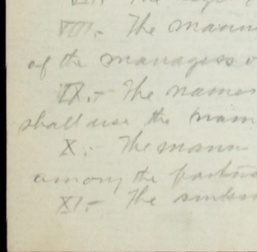 VIII.- The mann
of the managers o
IX.- The names
shall use the nam
X.- The mann
among the partn
XI.- The